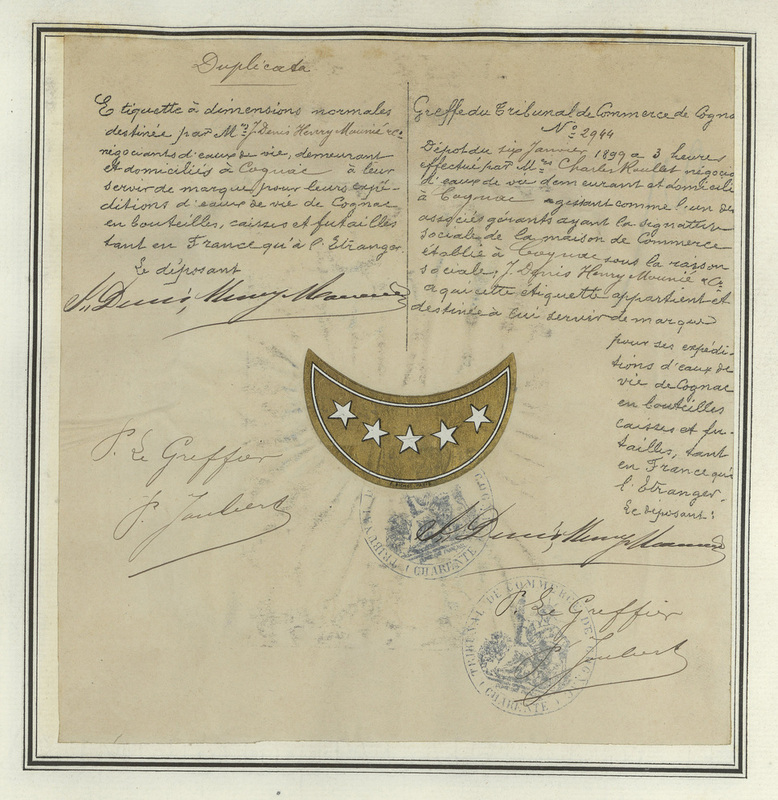 Duplicata
Etiquette à dimensions normales
destinée par Mrs J. Denis Henry Mounié & Co
négociants d'eaux de vie, demeurant
et domiciliés à Cognac à leur
servir de marque pour leurs expé-
ditions d'eaux de vie de Cognac
en bouteilles, caisses et futailles
tant en France qu'à l'Etranger.
Le déposant
J. Denis, Henry Mounié
P. Le Greffier
P. Joubert
Greffe du Tribunal de Commerce de Cogna
No 2944
Dépôt du six Janvier 1899 à 3 heures
effectué par Mr Charles Roullet négocia
d'eaux de vie demeurant et domicili
à Cognac agissant comme l'un des
associés gérants ayant la signature
sociale de la maison de Commerce
établie à Cognac sous la raison
sociale; J. Denis Henry Mounié & Co
à qui cette étiquette appartient et
destinée à lui servir de marque
pour ses expédi-
tions d'eaux de
vie de Cognac
en bouteilles
caisses et fu-
tailles, tant
en France qu'à
l'Etranger.
Le déposant:
J. Denis, Henry Mounié
TRIBUNAL
CHARENTE
P. Le Greffier
P. Joubert
TRIBUNAL DE COMMERCE DE COGNAC
(CHARENTE)